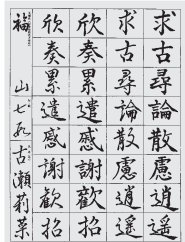 求古尋論散慮逍遥
求古尋論散慮逍遥
欣奏累遣感謝歡招
欣奏累遣感謝歡招
福山 七 古瀬莉菜